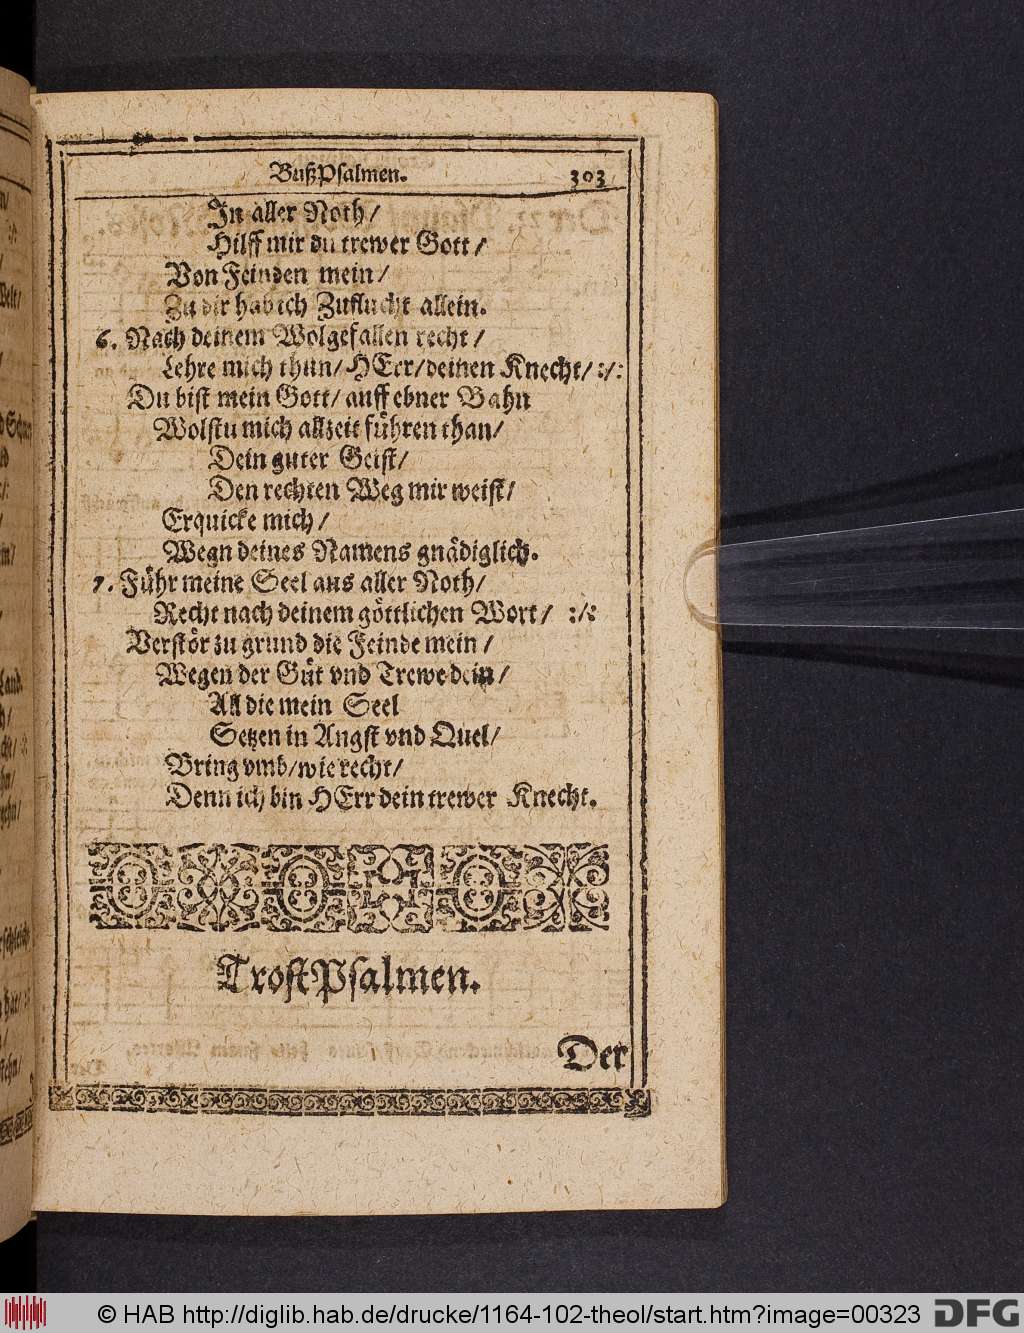 BußPsalmen. 303
In aller Noth/
Hilff mir du trewer Gott/
Von Feinden mein/
Zu dir hab ich Zuflucht allein.
6. Nach deinem Wolgefallen recht/
Lehre mich thun/HErr/deinen Knecht/:/:
Du bist mein Gott/auff ebner Bahn
Wolstu mich allzeit führen than/
Dein guter Geist/
Den rechten Weg mir weist/
Erquicke mich/
Wegn deines Namens gnädiglich.
7. Führ meine Seel aus aller Noth/
Recht nach deinem göttlichen Wort/ :/:
Verstör zu grund die Feinde mein/
Wegen der Güt vnd Trewe dein/
All die mein Seel
Setzen in Angst vnd Quel/
Bring vmb/wie recht/
Denn ich bin HErr dein trewer Knecht.
TrostPsalmen.
Der
© HAB http://diglib.hab.de/drucke/1164-102-theol/start.htm?image=00323
DFG